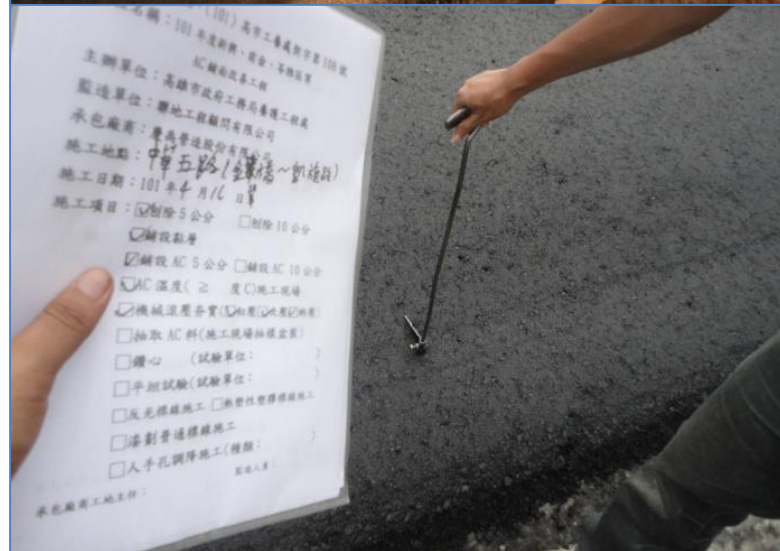 (101) 高市工養處契字第108號
名稱：101年度新興、前金、苓雅區等
AC鋪面改善工程
主辦單位：高雄市政府工務局養護工程處
監造單位：聯地工程顧問有限公司
承包廠商：營造股份有限公司
施工地點：中華五路(
施工日期：101年4月16日
施工項目：☑刨除5公分 □刨除10公分
☑鋪設黏層
☑鋪設AC 5公分 □鋪設AC 10公分
☑AC溫度( ≥ 度C)施工現場
☑機械滾壓夯實(☑初壓☑次壓☑終壓)
□抽取AC料(施工現場抽樣盒裝)
□鑽心 (試驗單位： )
□平坦試驗(試驗單位： )
□反光標線施工 □熱塑性塑膠標線施工
□漆劃普通標線施工
□人手孔調降施工(種類： )
監造人員：
承包廠商工地主任：